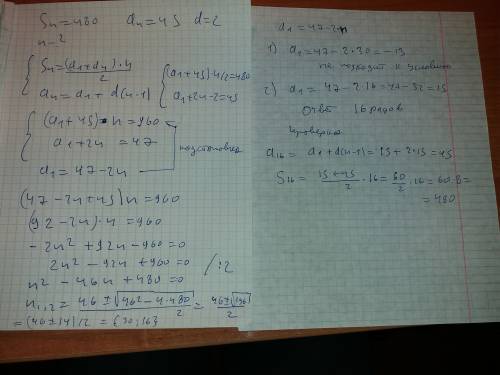 Sn=480 an=45 d=2
n-?
Sn=(a1+an)·n/2
an=a1+d(n-1)
(a1+45)·n/2=480
a1+2n-2=45
(a1+45)·n=960
a1+2n=47
a1=47-2n
подстановка
(47-2n+45)n=960
(92-2n)·n=960
-2n²+92n-960=0
2n²-92n+960=0 /:2
n²-46n+480=0
n1,2=46±√46²-4·480/2=46±√196/2
=(46±14)/2={30;16}
a1=47-2n
1) a1=47-2·30=-13
не подходит к условию
2) a1=47-2·16=47-32=15
Ответ 16 рядов
проверка
a16=a1+d(n-1)=15+2·15=45
S16=15+45/2·16=60/2·16=60·8=
=480